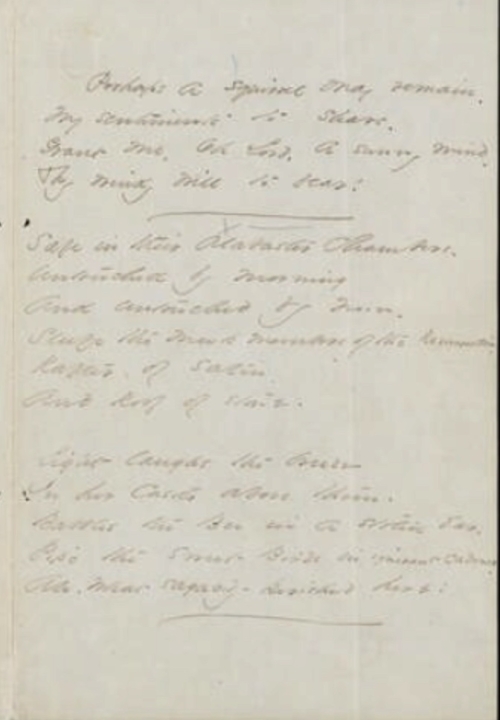 Perhaps a squirrel may remain.
My sentiments to share.
Grant me, Oh Lord, a sunny mind.
Thy windy will to bear!
Safe in their Alabaster Chambers.
Untouched by morning
And untouched by noon.
Sleep the meek members of the Resurrection
Rafter of Satin
And Roof of Stone.
Light laughs the breeze
In her Castle above them.
Babbles the Bee in a stolid Ear.
Pipe the Sweet Birds in ignorant Cadence
Ah, what sagacity perished here!